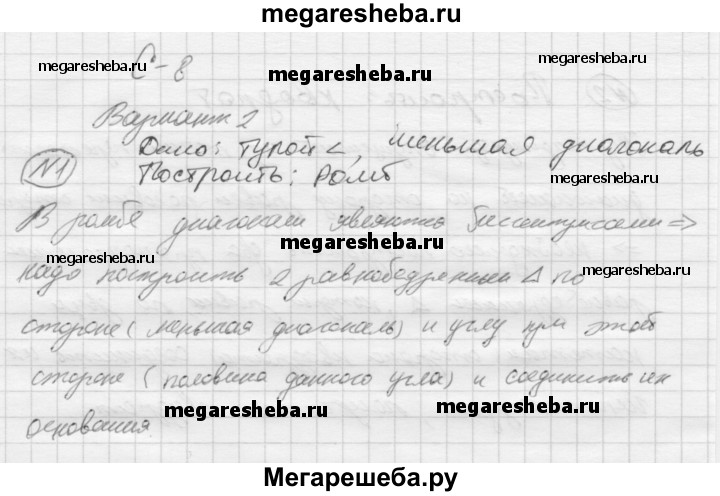 megaresheba.ru
megaresheba.ru С-8 megaresheba.ru
megaresheba.ru
Вариант 2
Дано: Тупой <, меньшая диагональ
№1 Построить: Ромб
В ромбе диагонали являются биссектрисами =>
megaresheba.ru
надо построить 2 равнобедренных Δ по megaresheba.ru
стороне (меньшая диагональ) и углу при этой
стороне (половина данного угла) и соединить их
megaresheba.ru megaresheba.ru
основания
Мегарешеба.ру